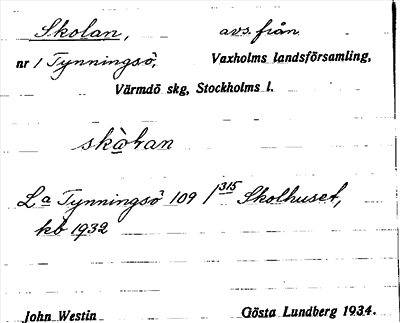 Skolan, avs. från
nr 1 Tynningsö, Vaxholms landsförsamling,
Värmdö skg, Stockholms l.
skò̱lan
La Tynningsö 109 / 315 Skolhuset,
kb 1932
John Westin Gösta Lundberg 1934.